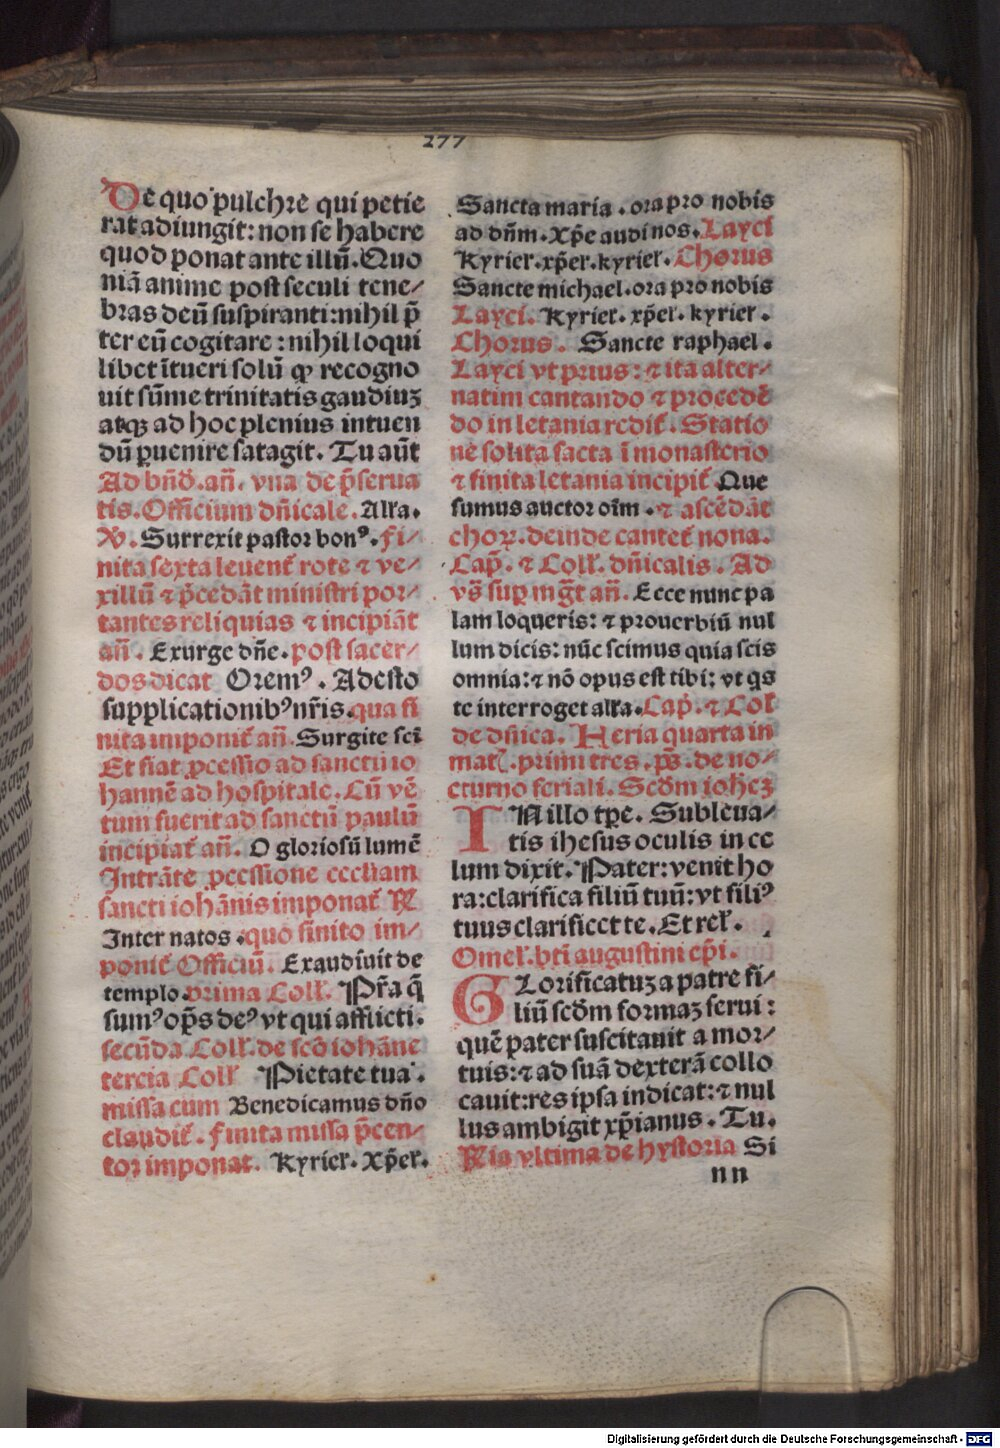 277
De quo pulchre qui petie
rat adiungit: non se habere
quod ponat ante illū. Quo
niā anime post seculi tene⸗
bras deū suspiranti: nihil p̄
ter eū cogitare : nihil loqui
libet ītueri solū qꝫ recogno
uit sūme trinitatis gaudiuꝫ
atqꝫ ad hoc plenius intuen
dū ꝑuenire satagit. Tu aūt
Ad bn̄d. an̄. vna de p̄serua
tis. Officium dn̄icale. Alľa.
℣. Surrexit pastor bonꝰ. fi⸗
nita sexta leuent̄ rote ⁊ ve⸗
xillū ⁊ p̄cedāt ministri por⸗
tantes reliquias ⁊ incipiāt
an̄. Exurge dn̄e. post sacer⸗
dos dicat Oremꝰ. Adesto
supplicationibꝰ nr̄is. qua fi
nita imponit̄ an̄. Surgite scī
Et fiat ꝓcessio ad sanctū io
hannē ad hospitale. Cū vē
tum fuerit ad sanctū paulū
incipiat̄ an̄. O gloriosū lumē
Intrāte ꝓcessione ecclīam
sancti iohānis imponat̄ ℟
Inter natos . quo finito im⸗
ponit̄ Officiū. Exaudiuit de
templo. prima Coll. Pr̄a q̄
sumꝰ op̄s deꝰ vt qui afflicti.
secūda Coll. de scō iohāne
tercia Coll Pietate tua .
missa cum Benedicamus dn̄o
claudit̄. Finita missa p̄cen⸗
tor imponat. Kyrieľ. xp̄eľ.
Sancta maria . ora pro nobis
ad dn̄m. xp̄e audi nos. Layci
Kyrieľ. xp̄eľ. kyrieľ. Chorus
Sancte michael. ora pro nobis
Layci. Kyrieľ. xp̄eľ. kyrieľ.
Chorus. Sancte raphael.
Layci vt prius: ⁊ ita alter⸗
natim cantando ⁊ procedē
do in letania redit̄. Statio
ne solita facta ī monasterio
⁊ finita letania incipit̄ Que
sumus auctor oīm . ⁊ ascēdāt
choꝝ. deinde cantet̄ nona.
Cap̄. ⁊ Coll. dn̄icalis. Ad
vs̄ suꝑ mḡt an̄. Ecce nunc pa
lam loqueris: ⁊ prouerbiū nul
lum dicis: nūc scimus quia scis
omnia: ⁊ nō opus est tibi: vt qs
te interroget alľa. Cap̄. ⁊ Col
de dn̄ica. Feria quarta in
mat. primi tres. ps̄. de no⸗
cturno feriali. Scdm̄ iohēꝫ
IN illo tꝑe. Subleua⸗
tis ihesus oculis in ce
lum dixit. Pater: venit ho
ra: clarifica filiū tuū: vt filiꝰ
tuus clarificet te. Et reľ.
Omeľ. bt̄i augustini ep̄i.
GLorificatuꝫ a patre fi⸗
liū scdm̄ formaꝫ serui:
quē pater suscitauit a mor⸗
tuis: ⁊ ad suā dexterā collo
cauit: res ipsa indicat: ⁊ nul
lus ambigit xp̄ianus. Tu.
℟ia vltima de hystoria Si
nn
Digitalisierung gefördert durch die Deutsche Forschungsgemeinschaft - DFG